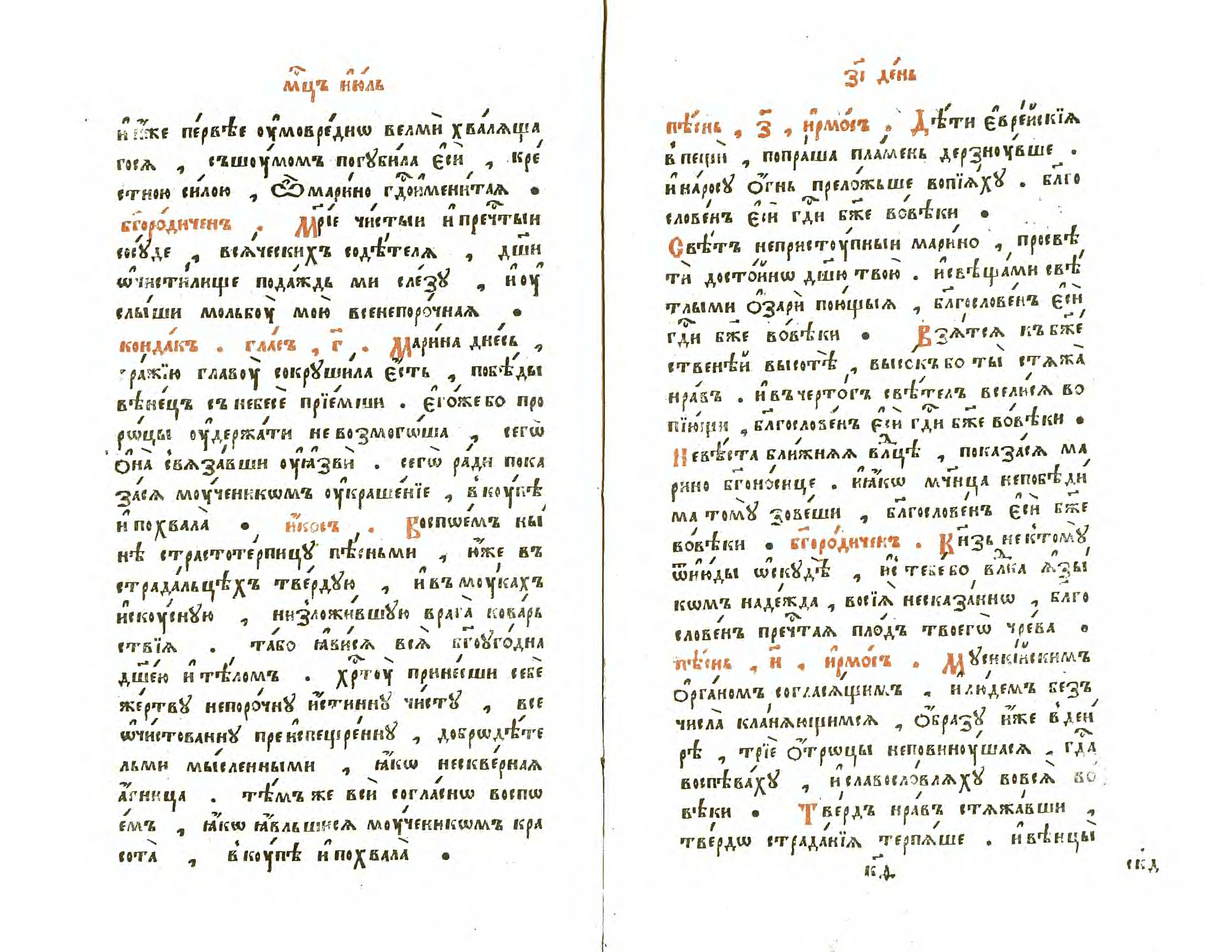 мⷭ҇цъ і҆ю́ль
и҆и҆́же пе́рвѣе ᲂу҆мовре́днѡ велмѝ хваля́ща
гося , съшꙋ́момъ погꙋби́ла є҆сѝ , кре́
стною си́лою , ѽ мари́но гдⷭ҇ои҆мени́тая .
бг҃оро́диченъ . Мр҃і́е чи́стыи и҆ пречⷭ҇тыи
сосꙋ́де , вся́ческихъ содѣ́теля , дш҃и
ѡ҆чисти́лище пода́ждь ми сле́зꙋ , и҆ ᲂу҆
слы́ши мольбꙋ̀ мою̀ всенепоро́чная .
конда́къ . гла́съ , г҃ . Мари́на дне́сь ,
вра́жїю главꙋ̀ сокрꙋши́ла є҆́сть , побѣ́ды
вѣне́цъ съ небесѐ прїе́мши . є҆го́же бо про
рѡ́цы ᲂу҆держа́ти не возмого́ша , сегѡ̀
ѻ҆на̀ свѧза́вши ᲂу҆ꙗзвѝ . сегѡ̀ ра́ди пока
за́ся мꙋ́ченикѡмъ ᲂу҆краше́нїе , вкꙋ́пѣ
и҆ похвала̀ . і҆́косъ . Воспѡе́мъ ны́
нѣ страстоте́рпицꙋ пѣ́сньми , ю҆́же въ
страда́льцѣхъ тве́рдꙋю , и҆ въ мꙋ́кахъ
и҆скꙋ́снꙋю , низложи́вшꙋю врага̀ кова́рь
ствїя . та́бо ꙗ҆ви́ся вся̀ бг҃оꙋго́дна
дш҃е́ю и҆ тѣ́ломъ . хрⷭ҇тꙋ̀ прине́сши себѐ
же́ртвꙋ непоро́чнꙋ и҆́стиннꙋ чи́стꙋ , все
ѡ҆чи́стованнꙋ преи҆спещре́ннꙋ , добрѡдѣ́те
льми мы́сленными , ꙗ҆́кѡ нескве́рная
а҆́гница . тѣ́мъ же всѝ согла́снѡ воспѡ
е́мъ , ꙗ҆́кѡ ꙗ҆́вльшися мꙋ́ченикѡмъ кра
сота̀ , вкꙋ́пѣ и҆ похвала̀ .
з҃і де́нь
пѣ́снь , з҃ , і҆рмо́съ . Дѣ́ти є҆вре́йскїя
в пещѝ , попра́ша пла́мень дерзнꙋ́вше .
и҆ на́росꙋ ѻ҆́гнь преложьше вопїя́хꙋ . бл҃го
слове́нъ є҆сѝ гдⷭ҇и бж҃е во́вѣки .
Свѣ́тъ непристꙋ́пныи мари́но , просвѣ
тѝ досто́йнѡ дш҃ю твою̀ . и҆ свѣща́ми свѣ́
тлыми ѻ҆зарѝ пою́щыя , бл҃гослове́нъ є҆сѝ
гдⷭ҇и бж҃е во́вѣки . Взя́тся къ бж҃е
ственѣ́й высотѣ̀ , высо́къ бо ты̀ стяжа̀
нра́въ . и҆ въ черто́гъ свѣ́телъ всели́ся во
пїю́щи , бл҃гослове́нъ є҆сѝ гдⷭ҇и бж҃е во́вѣки .
Невѣ́ста бли́жняя влⷣцѣ , показа́ся ма
рино бг҃оно́сице . и҆ ꙗ҆́кѡ мч҃ница непобѣ́ди
ма томꙋ̀ зове́ши , бл҃гослове́нъ є҆сѝ бж҃е
во́вѣки . бг҃оро́диченъ . Кня́зь не ктомꙋ̀
ѿ ню́ды ѡ҆скꙋдѣ̀ , и҆с тебе́ бо влⷣка я҆зы́
кѡмъ наде́жда , восїя̀ несказа́ннѡ , бл҃го
слове́нъ пречⷭ҇тая пло́дъ твоегѡ̀ чре́ва .
пѣ́снь , и҃ , і҆рмо́съ . Мꙋсикі́йскимъ
ѻ҆рга́номъ согласѧ́щимъ , и҆ лю́демъ безъ
числа̀ кла́няющимся , ѻ҆́бразꙋ и҆́же в деи́
рѣ , трїѐ ѻ҆́трѡцы неповинꙋ́шася , гдⷭ҇а
воспѣва́хꙋ , и҆ славосло́вляхꙋ во вся̀ во
вѣки . Тве́рдъ нра́въ стяжа́вши ,
тве́рдѡ страда́нїя терпя́ше . и҆ вѣнцы̀
к҃д
ск҃д